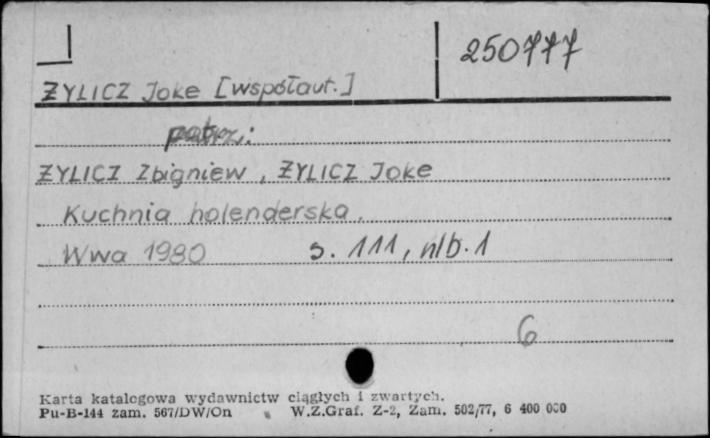 250777
ŻYLICZ Joke [współaut.]
patrz:
ŻYLICZ Zbigniew, ŻYLICZ Joke
Kuchnia holenderska.
Wwa 1980 s. 111, nlb. 1
6
Karta katalogowa wydawnictw ciągłych i zwartych.
Pu-B-144 zam. 567/DW/On W.Z.Graf. Z-2, Zam. 502/77, 6 400 000